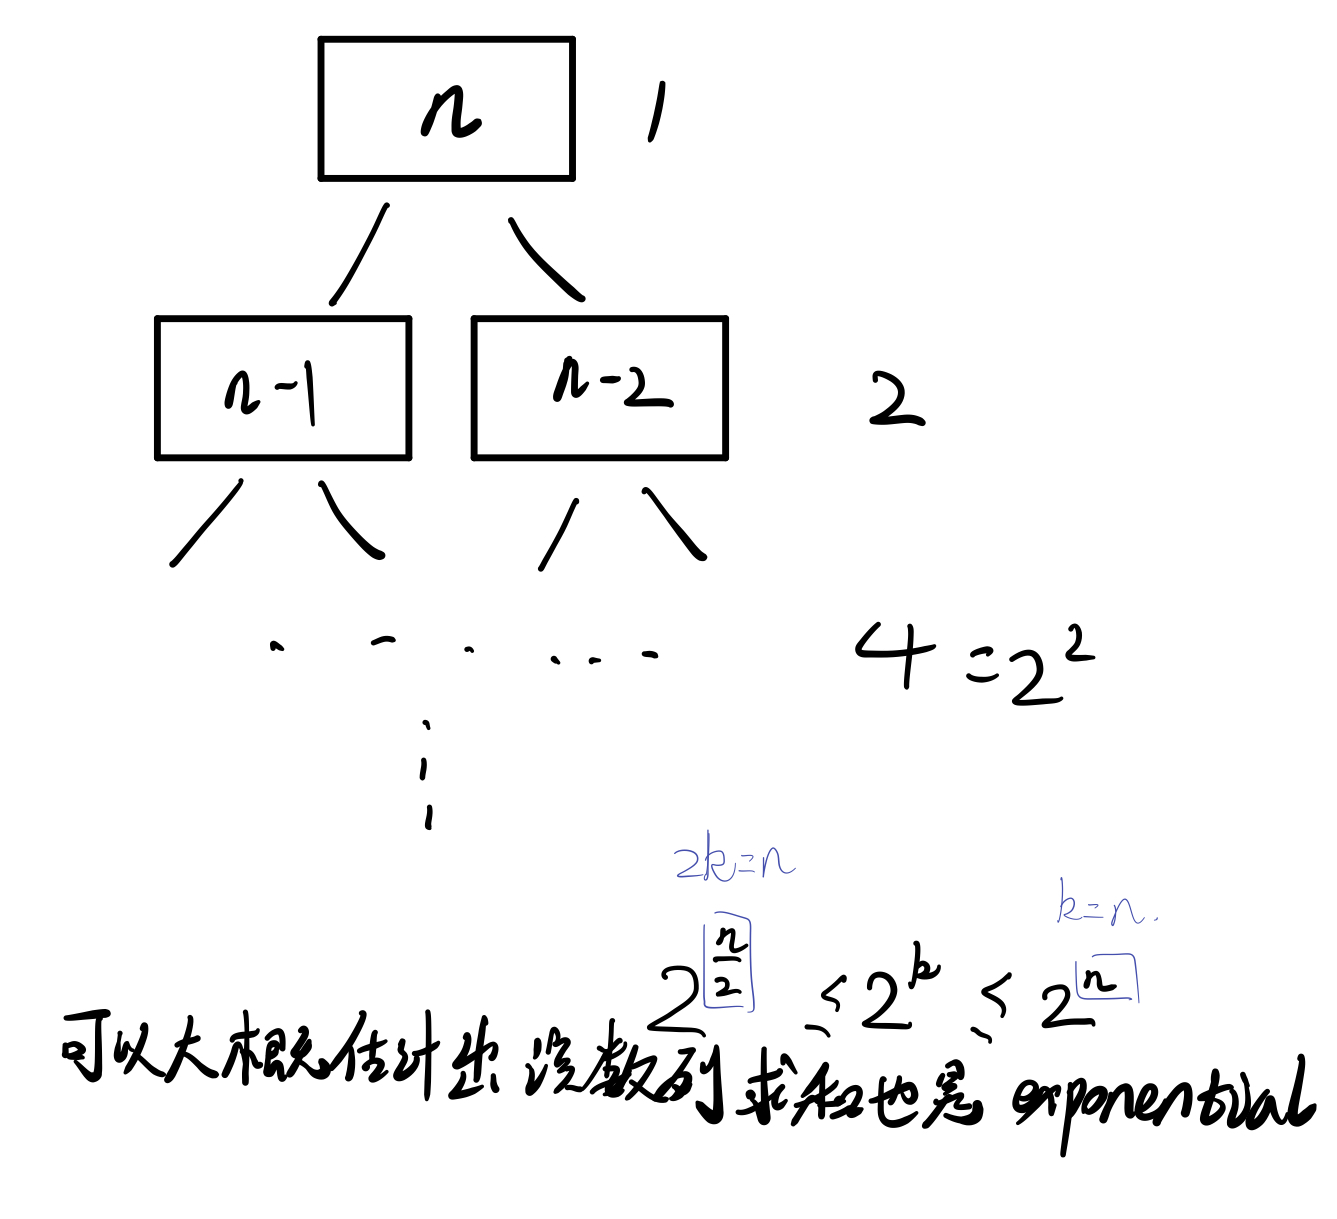 n 1
n-1 n-2 2
4 = 2^2
2k=n
k=n.
2^{n/2} ≤ 2^k ≤ 2^n
可以大概估计出该数列求和也是 exponential